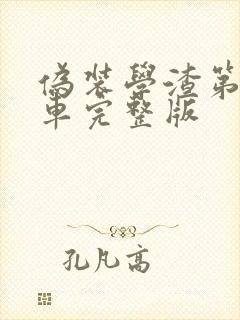 偽裝學渣第
車完整版
孔凡高